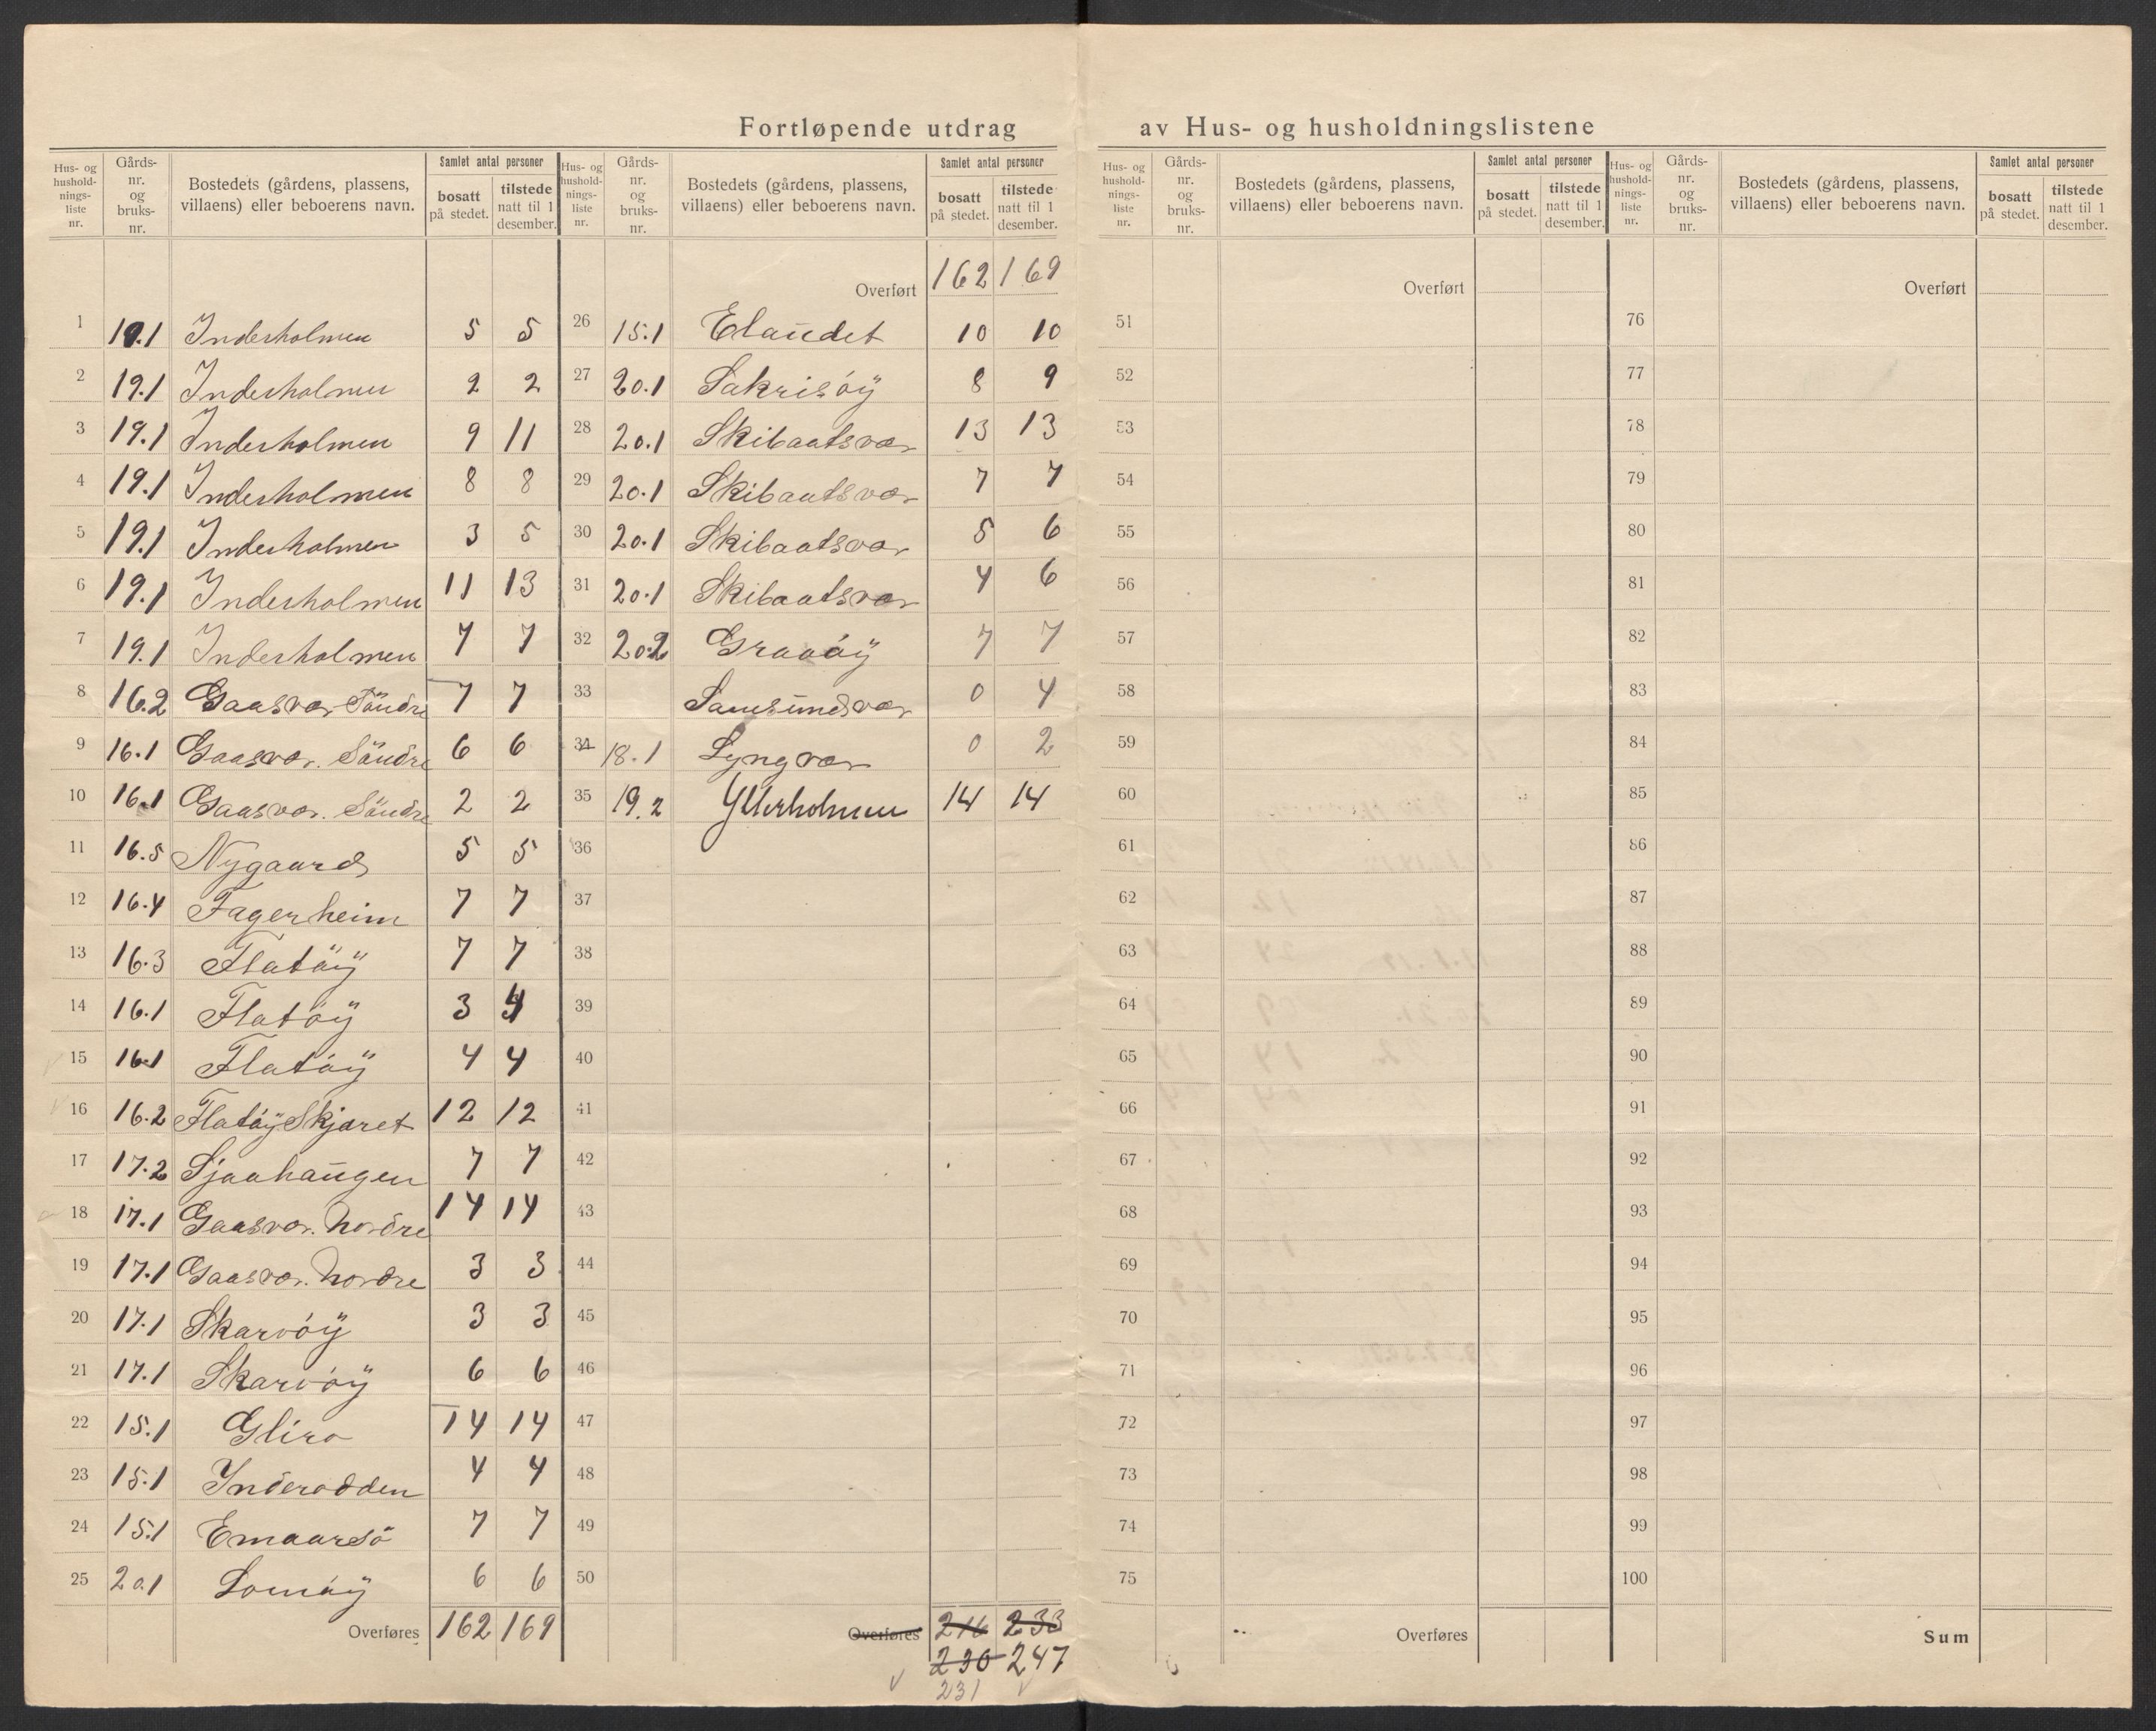 Fortløpende utdrag av Hus- og husholdningslistene
Hus- og husholdnings-liste nr. | Gårds-nr. og bruks-nr. | Bostedets (gårdens, plassens, villaens) eller beboerens navn. | Samlet antal personer | bosatt på stedet. | tilstede natt til 1 desember.
1 19.1 Inderholmen 5 5
2 19.1 Inderholmen 2 2
3 19.1 Inderholmen 9 11
4 19.1 Inderholmen 8 8
5 19.1 Inderholmen 3 5
6 19.1 Inderholmen 11 13
7 19.1 Inderholmen 7 7
8 16.2 Gaasvær Söndre 7 7
9 16.1 Gaasvær. Söndre 6 6
10 16.1 Gaasvær. Söndre 2 2
11 16.5 Nygaard 5 5
12 16.4 Fagerheim 7 7
13 16.3 Flatöÿ 7 7
14 16.1 Flatöÿ 3 4
15 16.1 Flatöÿ 4 4
16 16.2 FlatöÿSkjæret 12 12
17 17.2 Sjaahaugen 7 7
18 17.1 Gaasvær. Nordre 14 14
19 17.1 Gaasvær. Nordre 3 3
20 17.1 Skarvöÿ 3 3
21 17.1 Skarvöÿ 6 6
22 15.1 Glira 14 14
23 15.1 Inderodden 4 4
24 15.1 Emaarsö 7 7
25 20.1 Lomöÿ 6 6
Overføres 162 169
Hus- og husholdnings-liste nr. | Gårds-nr. og bruks-nr. | Bostedets (gårdens, plassens, villaens) eller beboerens navn. | Samlet antal personer | bosatt på stedet. | tilstede natt til 1 desember.
Overført 162 169
26 15.1 Elaudet 10 10
27 20.1 Sakrisöÿ 8 9
28 20.1 Skibaatsvær 13 13
29 20.1 Skibaatsvær 7 7
30 20.1 Skibaatsvær 5 6
31 20.1 Skibaatsvær 4 6
32 20.2 Graaöÿ 7 7
33 0 4
34 18.1 Lyngvær 0 2
35 19.2 Ytterholmen 14 14
36
37
38
39
40
41
42
43
44
45
46
47
48
49
50
Overføres 216 233
230 247
231
Hus- og husholdnings-liste nr. | Gårds-nr. og bruks-nr. | Bostedets (gårdens, plassens, villaens) eller beboerens navn. | Samlet antal personer | bosatt på stedet. | tilstede natt til 1 desember.
Overført
51
52
53
54
55
56
57
58
59
60
61
62
63
64
65
66
67
68
69
70
71
72
73
74
75
Overføres
Hus- og husholdnings-liste nr. | Gårds-nr. og bruks-nr. | Bostedets (gårdens, plassens, villaens) eller beboerens navn. | Samlet antal personer | bosatt på stedet. | tilstede natt til 1 desember.
Overført
76
77
78
79
80
81
82
83
84
85
86
87
88
89
90
91
92
93
94
95
96
97
98
99
100
Sum